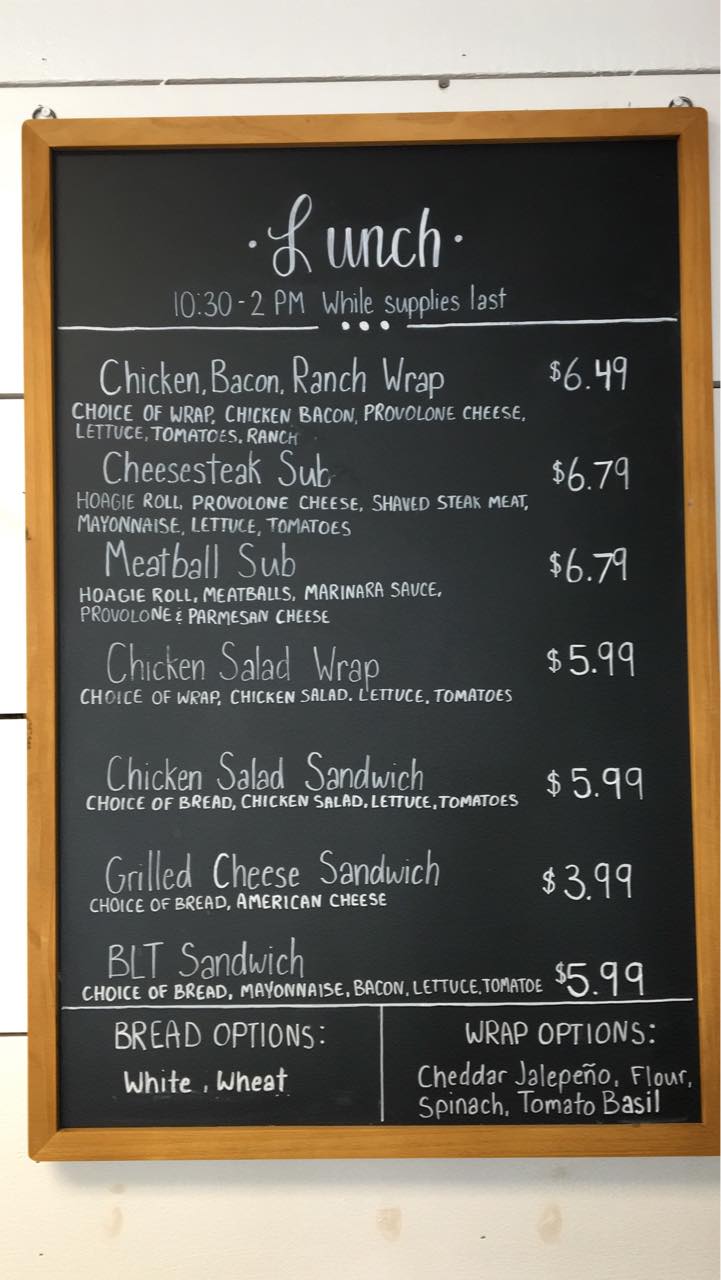 · Lunch ·
10:30 - 2 PM While supplies last
Chicken, Bacon, Ranch Wrap $6.49
CHOICE OF WRAP, CHICKEN BACON, PROVOLONE CHEESE,
LETTUCE, TOMATOES, RANCH
Cheesesteak Sub $6.79
HOAGIE ROLL, PROVOLONE CHEESE, SHAVED STEAK MEAT,
MAYONNAISE, LETTUCE, TOMATOES
Meatball Sub $6.79
HOAGIE ROLL, MEATBALLS, MARINARA SAUCE,
PROVOLONE & PARMESAN CHEESE
Chicken Salad Wrap $5.99
CHOICE OF WRAP, CHICKEN SALAD, LETTUCE, TOMATOES
Chicken Salad Sandwich $5.99
CHOICE OF BREAD, CHICKEN SALAD, LETTUCE, TOMATOES
Grilled Cheese Sandwich $3.99
CHOICE OF BREAD, AMERICAN CHEESE
BLT Sandwich $5.99
CHOICE OF BREAD, MAYONNAISE, BACON, LETTUCE, TOMATOE
BREAD OPTIONS:
White, Wheat
WRAP OPTIONS:
Cheddar Jalepeño, Flour,
Spinach, Tomato Basil